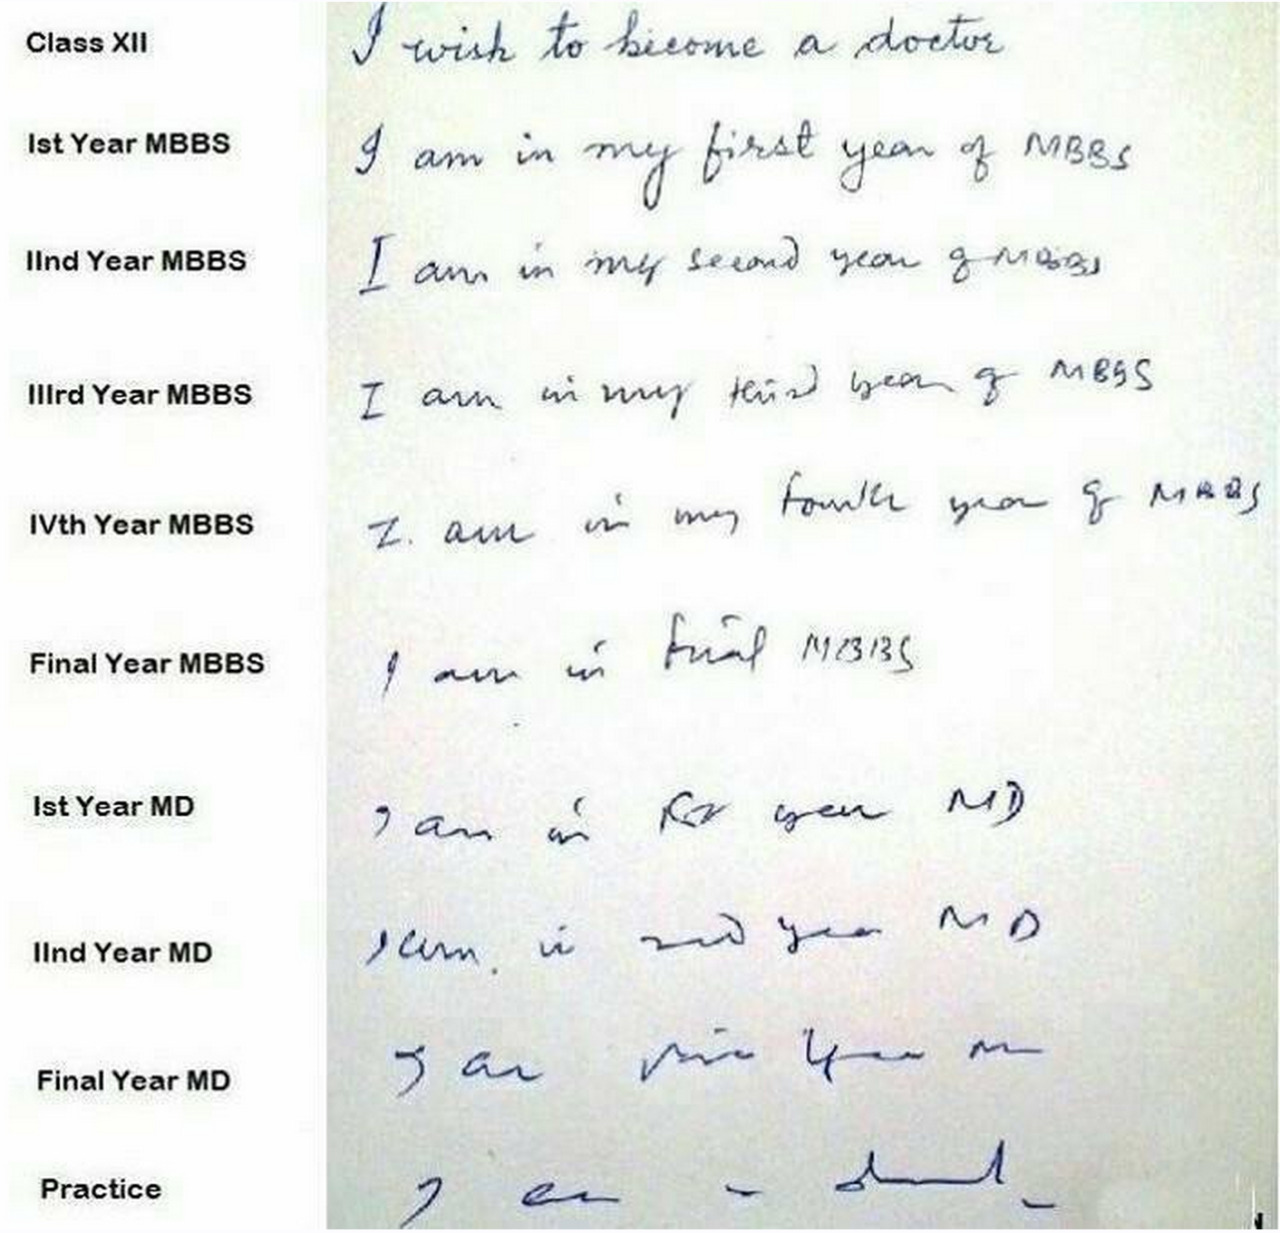 Class XII I wish to become a doctor
Ist Year MBBS I am in my first year of MBBS
IInd Year MBBS I am in my second year of MBBS
IIIrd Year MBBS I am in my third year of MBBS
IVth Year MBBS I am in my fourth year of MBBS
Final Year MBBS I am in final MBBS
Ist Year MD I am in year MD
IInd Year MD I am in 2nd year MD
Final Year MD I am Year
Practice I